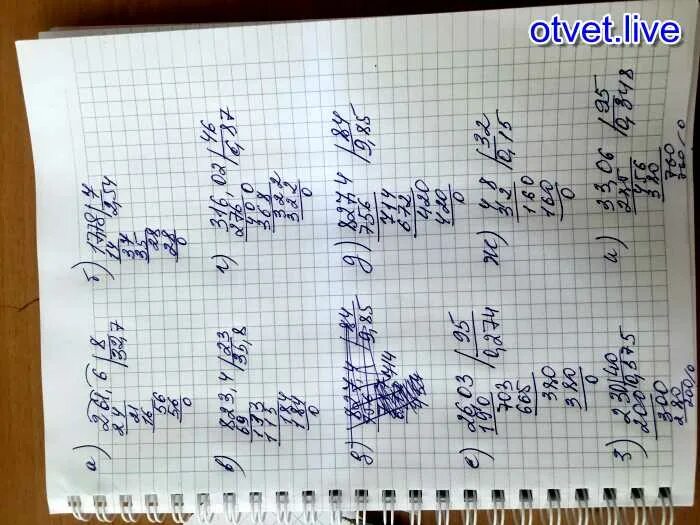 otvet.live
а) 261,6 | 8
24 | 32,7
21
16
56
56
0
б) 1778 | 7
14 | 254
37
35
28
28
0
в) 823,4 | 23
69 | 35,8
133
115
184
184
0
г) 316,02 | 46
276 | 6,87
400
368
322
322
0
84
9,85
д) 827,4 | 84
756 | 9,85
714
672
420
420
0
е) 26,03 | 95
190 | 0,274
703
665
380
380
0
ж) 4,8 | 32
32 | 0,15
160
160
0
з) 230 | 40
200 | 0,575
300
280
200
и) 33,06 | 95
285 | 0,348
456
380
760
760
0